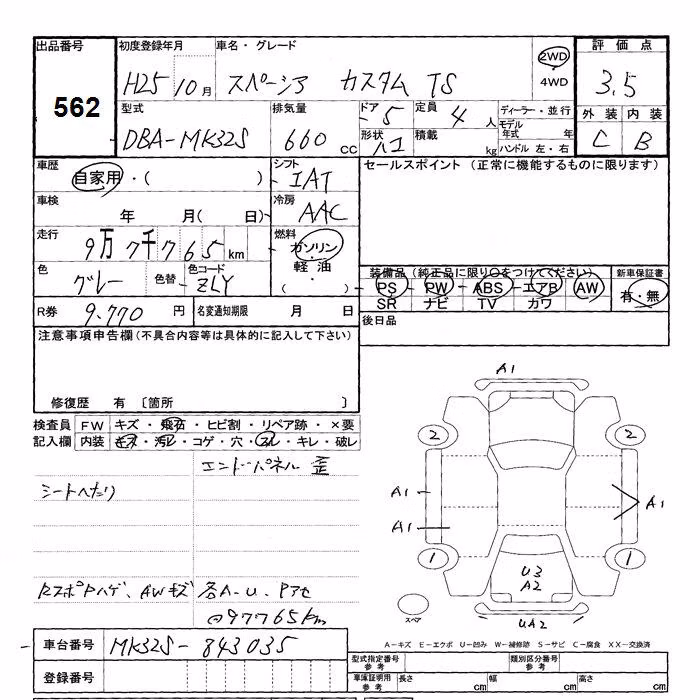 出品番号
562
初度登録年月
H25 10月
車名・グレード
スペーシア カスタム TS
2WD
4WD
評価点
3.5
外装 内装
C B
型式
DBA-MK32S
排気量
660 CC
ドア
5
形状
ハコ
定員
4 人
積載
kg
ディーラー・並行
モデル
年式 年
ハンドル 左・右
車歴
自家用・( )
シフト
IAT
セールスポイント (正常に機能するものに限ります)
車検
年 月( 日)
冷房
AAC
走行
9万7千765km
燃料
ガソリン
軽油
( )
色
グレー
色替
色コード
ZLY
装備品 (純正品に限り○をつけてください)
PS - PW - ABS - エアB AW
SR ナビ TV カワ
新車保証書
有・無
R券
9.770 円
名変通知期限
月 日
後日品
注意事項申告欄(不具合内容等は具体的に記入して下さい)
修復歴 有 〔箇所 〕
検査員
記入欄
FW キズ・飛石・ヒビ割・リペア跡・×要
内装 キズ・汚レ・コゲ・穴・スレ・キレ・破レ
エンドパネル 歪
シートへたり
RスポPハゲ、AWキズ
各A-U、Pアセ
@97765km
A1
2 2
A1
A1
A1
1 1
U3
A2
UA2
スペア
A-キズ E-エクボ U-凹み W-補修跡 S-サビ C-腐食 XX-交換済
車台番号
MK32S-843035
登録番号
型式指定番号
参考
類別区分番号
参考
車庫証明用
参考
長さ cm
幅 cm
高さ cm